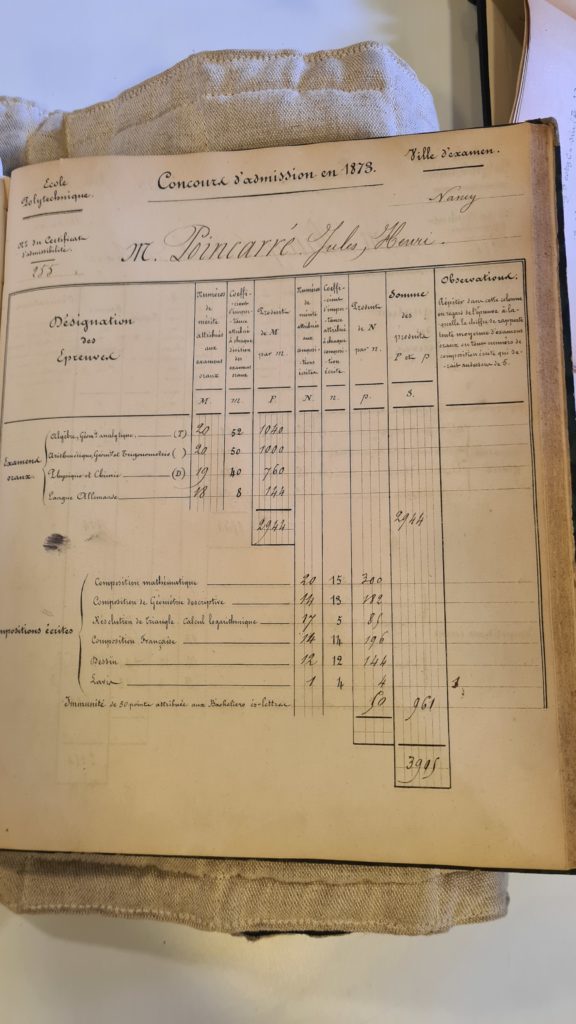 Ecole
Polytechnique.
Concours d'admission en 1873.
Ville d'examen.
Nancy
N.º du Certificat
d'admissibilité.
255
M. Poincarré Jules, Henri.
Désignation
des
Epreuves
Numéros
de
mérite
attribués
aux
examens
oraux
Coeffi-
cients
d'impor-
tance
attribués
à chaque
division
des
examens
oraux
Produits
de M
par m.
Numéros
de
mérite
attribués
aux
composi-
tions
écrites
Coeffi-
cients
d'impor-
tance
attribués
à chaque
composi-
tion
écrite.
Produits
de N
par n.
Somme
des
produits
P et p
Observations.
Répéter dans cette colonne
en regard de l'épreuve à la-
quelle le chiffre de rapporte
toute moyenne d'examens
oraux ou tout numéro de
composition écrite qui se-
rait au-dessous de 5.
M. m. P. N. n. p. S.
Examens
oraux.
Algèbre, Géom. analytique (T) 20 52 1040
Arithmétique, Géom. et Trigonométrie ( ) 20 50 1000
Physique et Chimie (D) 19 40 760
Langue Allemande 18 8 144
2944 2944
mpositions écrites
Composition mathématique 20 15 300
Composition de Géométrie descriptive 14 13 182
Résolution de Triangle Calcul logarithmique 17 5 85
Composition Française 14 14 196
Dessin 12 12 144
Lavis 1 4 4 1
Immunité de 50 points attribuée aux Bacheliers ès-lettres 50 961
3905